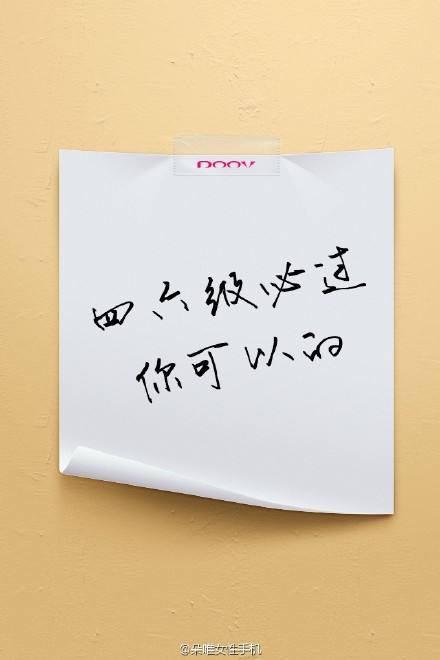 DOOV
四六级必过
你可以的
@朵唯女性手机